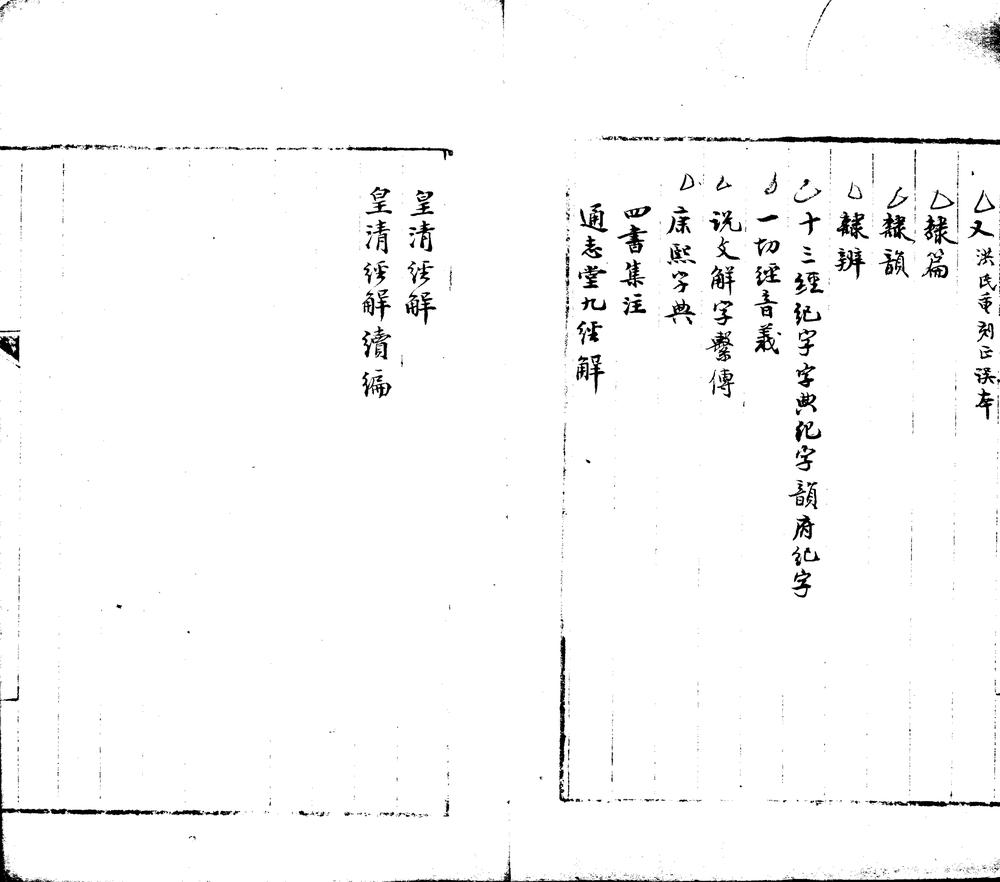 又 洪氏重刻正误本
隸篇
隸韻
隸辨
十三經紀字字典紀字韻府紀字
一切經音義
说文解字繫傳
康熙字典
四書集注
通志堂九經解
皇清经解
皇清经解續编